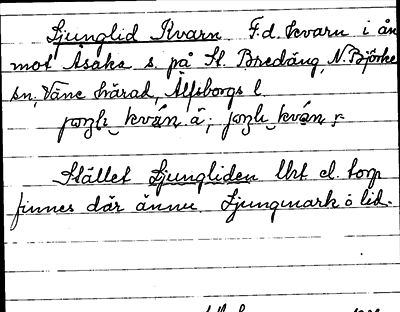 Ljunglid Kvarn F.d. kvarn i ån
mot Åsaka s. på St. Bredäng, N. Björke
sn, Väne härad, Älfsborgs l.
kván
Stället Ljungliden Utst el. torp
finnes där ännu. Ljungmark o lid.